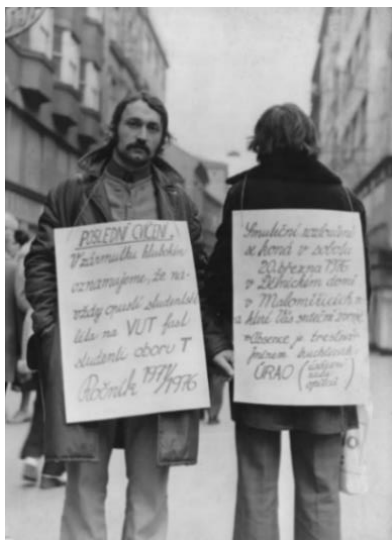 POSLEDNÍ CVIČENÍ
V zármutku hlubokém
oznamujeme, že na-
vždy opustí studentská
léta na VUT fast
studenti oboru T
Ročník 1971/1976
Smuteční rozloučení
se koná v sobotu
20. března 1976
v Dělnickém domě
v Maloměřicích
na které Vás srdečně
Absence je trestná
ÚRAO